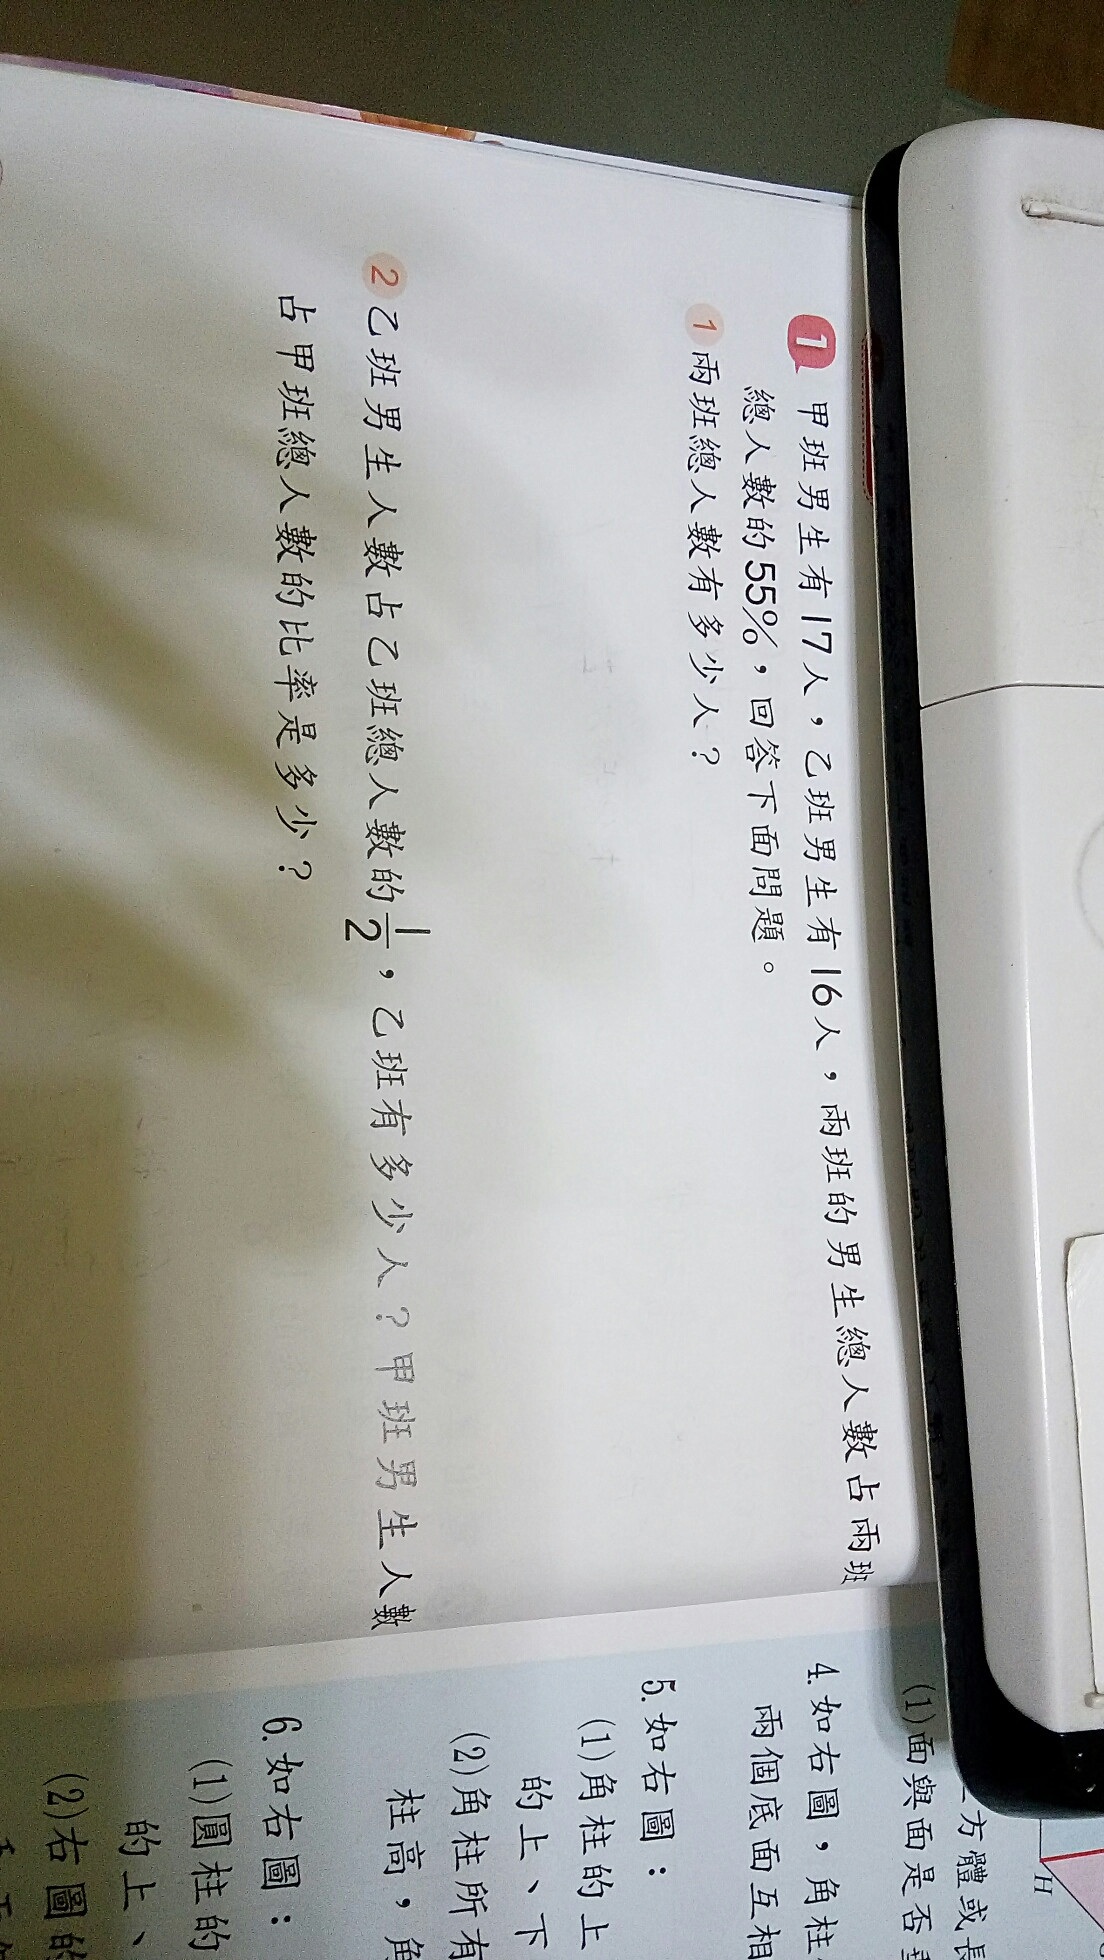 1 甲班男生有17人，乙班男生有16人，兩班的男生總人數占兩班
總人數的55%，回答下面問題。
1 兩班總人數有多少人？
2 乙班男生人數占乙班總人數的1/2，乙班有多少人？甲班男生人數
占甲班總人數的比率是多少？
方體或長
(1)面與面是否
H
4.如右圖，角柱
兩個底面互相
5.如右圖：
(1)角柱的上
的上、下
(2)角柱所有
柱高，角
6.如右圖：
(1)圓柱的
的上、
(2)右圖的